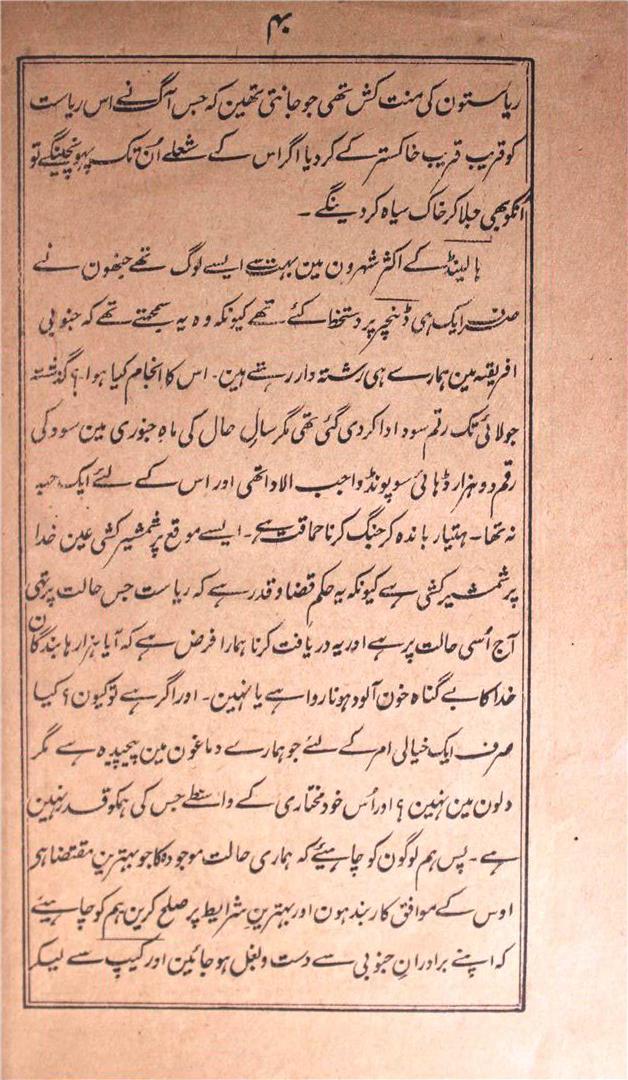 ۴
ریاستون کی منت کش تھی جو جانتی تھین کہ جس آگ نے اس ریاست
کو قریب قریب خاکستر کے کر دیا اگر اس کے شعلے اُن تک پہونچینگے تو
اُنکو بھی جلا کر خاک سیاہ کر دینگے ۔
ہالینڈ کے اکثر شہرون مین بہت سے ایسے لوگ تھے جنھون نے
صرف ایک ہی ڈنچر پر دستخط کئے تھے کیونکہ وہ یہ سمجھتے تھے کہ جنوبی
افریقہ مین ہمارے ہی رشتہ دار رہتے ہین ۔ اس کا انجام کیا ہوا ؟ گذشتہ
جولائی تک رقم سود ادا کر دی گئی تھی مگر سالِ حال کی ماہِ جنوری مین سود کی
رقم دو ہزار ڈہائی سو پونڈ واجب الادا تھی اور اس کے لئے ایک حبہ
نہ تھا ۔ ہتیار باندہ کر جنگ کرنا حماقت ہے ۔ ایسے موقع پر شمشیر کشی عین خدا
پر شمشیر کشی ہے کیونکہ یہ حکم قضا و قدر ہے کہ ریاست جس حالت پر تھی
آج اُسی حالت پر ہے اور یہ دریافت کرنا ہمارا فرض ہے کہ آیا ہزارہا بندگان
خدا کا بے گناہ خون آلود ہونا روا ہے یا نہین ۔ اور اگر ہے تو کیون ؟ کیا
صرف ایک خیالی امر کے لئے جو ہمارے دماغون مین پیچیدہ ہے مگر
دلون مین نہین ؟ اور اُس خود مختاری کے واسطے جس کی ہمکو قدر نہین
ہے ۔ پس ہم لوگون کو چاہیئے کہ ہماری حالت موجودہ کا جو بہترین مقتضا ہو
اوس کے موافق کاربند ہون اور بہترین شرایط پر صلح کرین ہم کو چاہیئے
کہ اپنے برادرانِ جنوبی سے دست و بغل ہو جائین اور کیپ سے لیکر